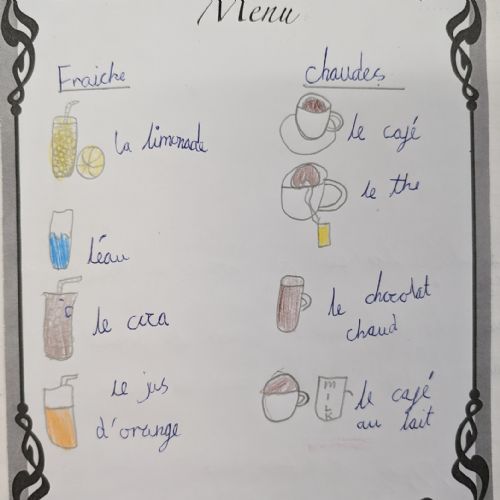 Menu
Fraiche
la limonade
léau
le coca
Le jus
d'orange
chaudes
le café
le the
le chocolat
chaud
MILK
le café
au lait